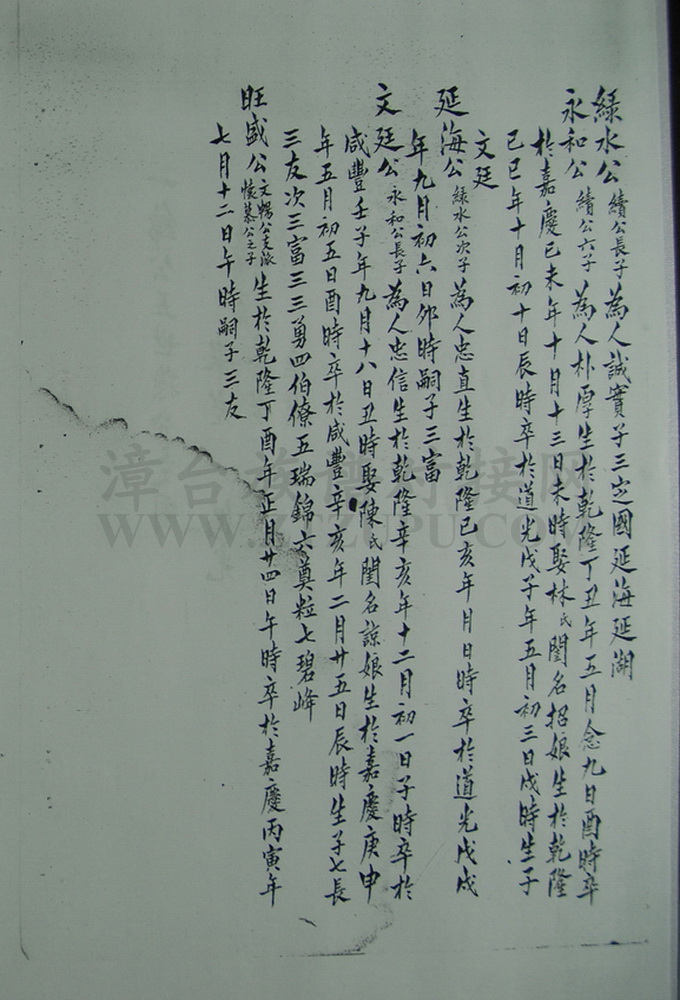 綠水公續公長子為人誠實子三定國延海延湖
永和公續公六子為人朴厚生於乾隆丁丑年五月念九日酉時卒
於嘉慶己未年十月十三日未時娶林氏閨名招娘生於乾隆
己巳年十月初十日辰時卒於道光戊子年五月初三日戌時生子
文廷
延海公綠水公次子為人忠直生於乾隆己亥年月日時卒於道光戊戌
年九月初六日卯時嗣子三富
文廷公永和公長子為人忠信生於乾隆辛亥年十二月初一日子時卒於
咸豐壬子年九月十八日丑時娶陳氏閨名諒娘生於嘉慶庚申
年五月初五日酉時卒於咸豐辛亥年二月廿五日辰時生子七長
三友次三富三三勇四伯僚五瑞錦六奠粒七碧峰
旺盛公文公支派懷慕公之子生於乾隆丁酉年正月廿四日午時卒於嘉慶丙寅年
七月十二日午時嗣子三友
漳台族譜對接網
WWW.ZTZUPU.COM